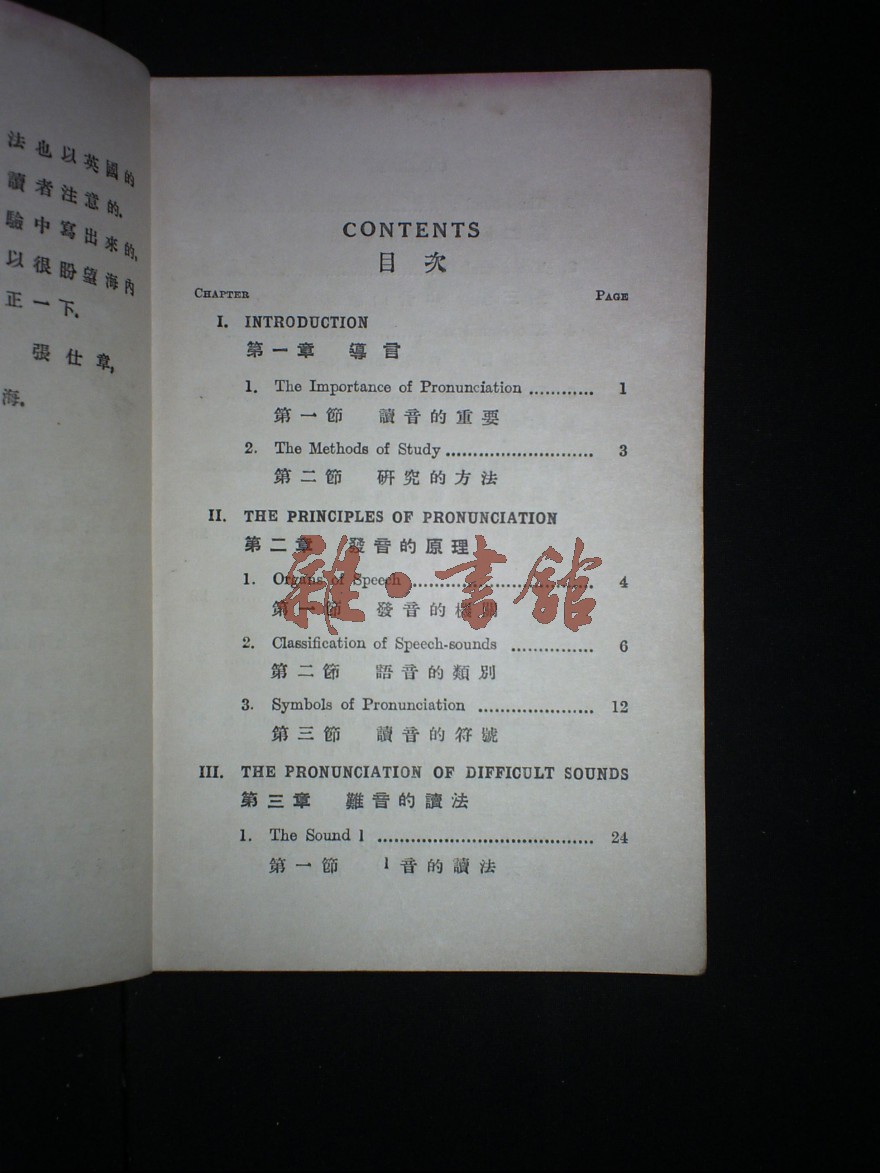 法也以英國的
讀者注意的.
驗中寫出來的,
以很盼望海內
正一下.
張仕章,
海.
CONTENTS
目次
CHAPTER PAGE
I. INTRODUCTION
第一章 導言
1. The Importance of Pronunciation ............ 1
第一節 讀音的重要
2. The Methods of Study ........................... 3
第二節 研究的方法
II. THE PRINCIPLES OF PRONUNCIATION
第二章 發音的原理
1. Organs of Speech ................................. 4
第一節 發音的機關
2. Classification of Speech-sounds ............... 6
第二節 語音的類別
3. Symbols of Pronunciation ..................... 12
第三節 讀音的符號
III. THE PRONUNCIATION OF DIFFICULT SOUNDS
第三章 難音的讀法
1. The Sound l ....................................... 24
第一節 l音的讀法
雜·書館